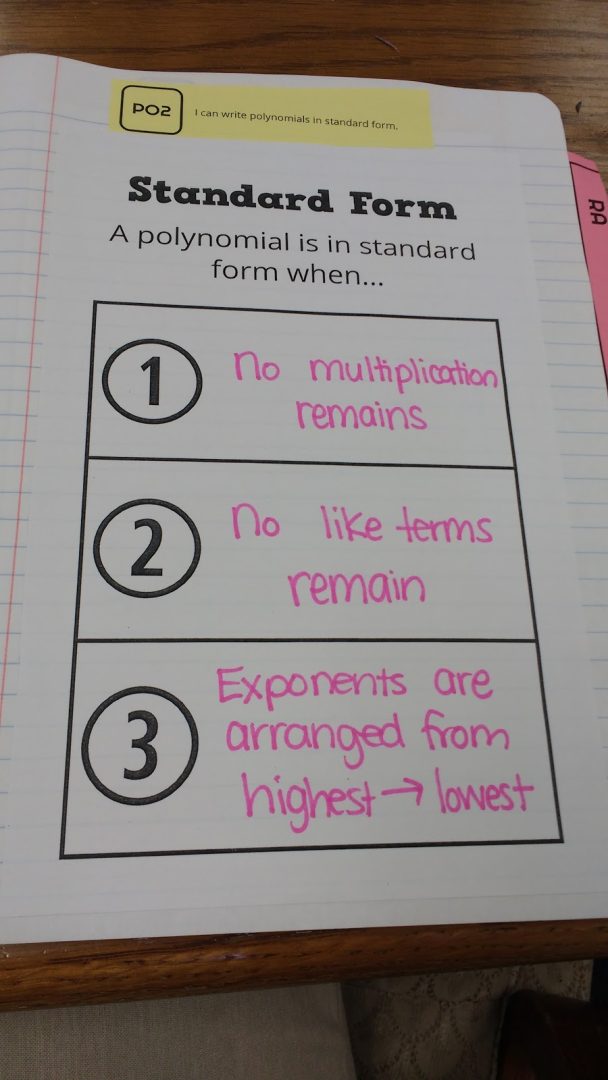 PO2
I can write polynomials in standard form.
Standard Form
A polynomial is in standard
form when...
1
No multiplication
remains
2
No like terms
remain
3
Exponents are
arranged from
highest → lowest
RA